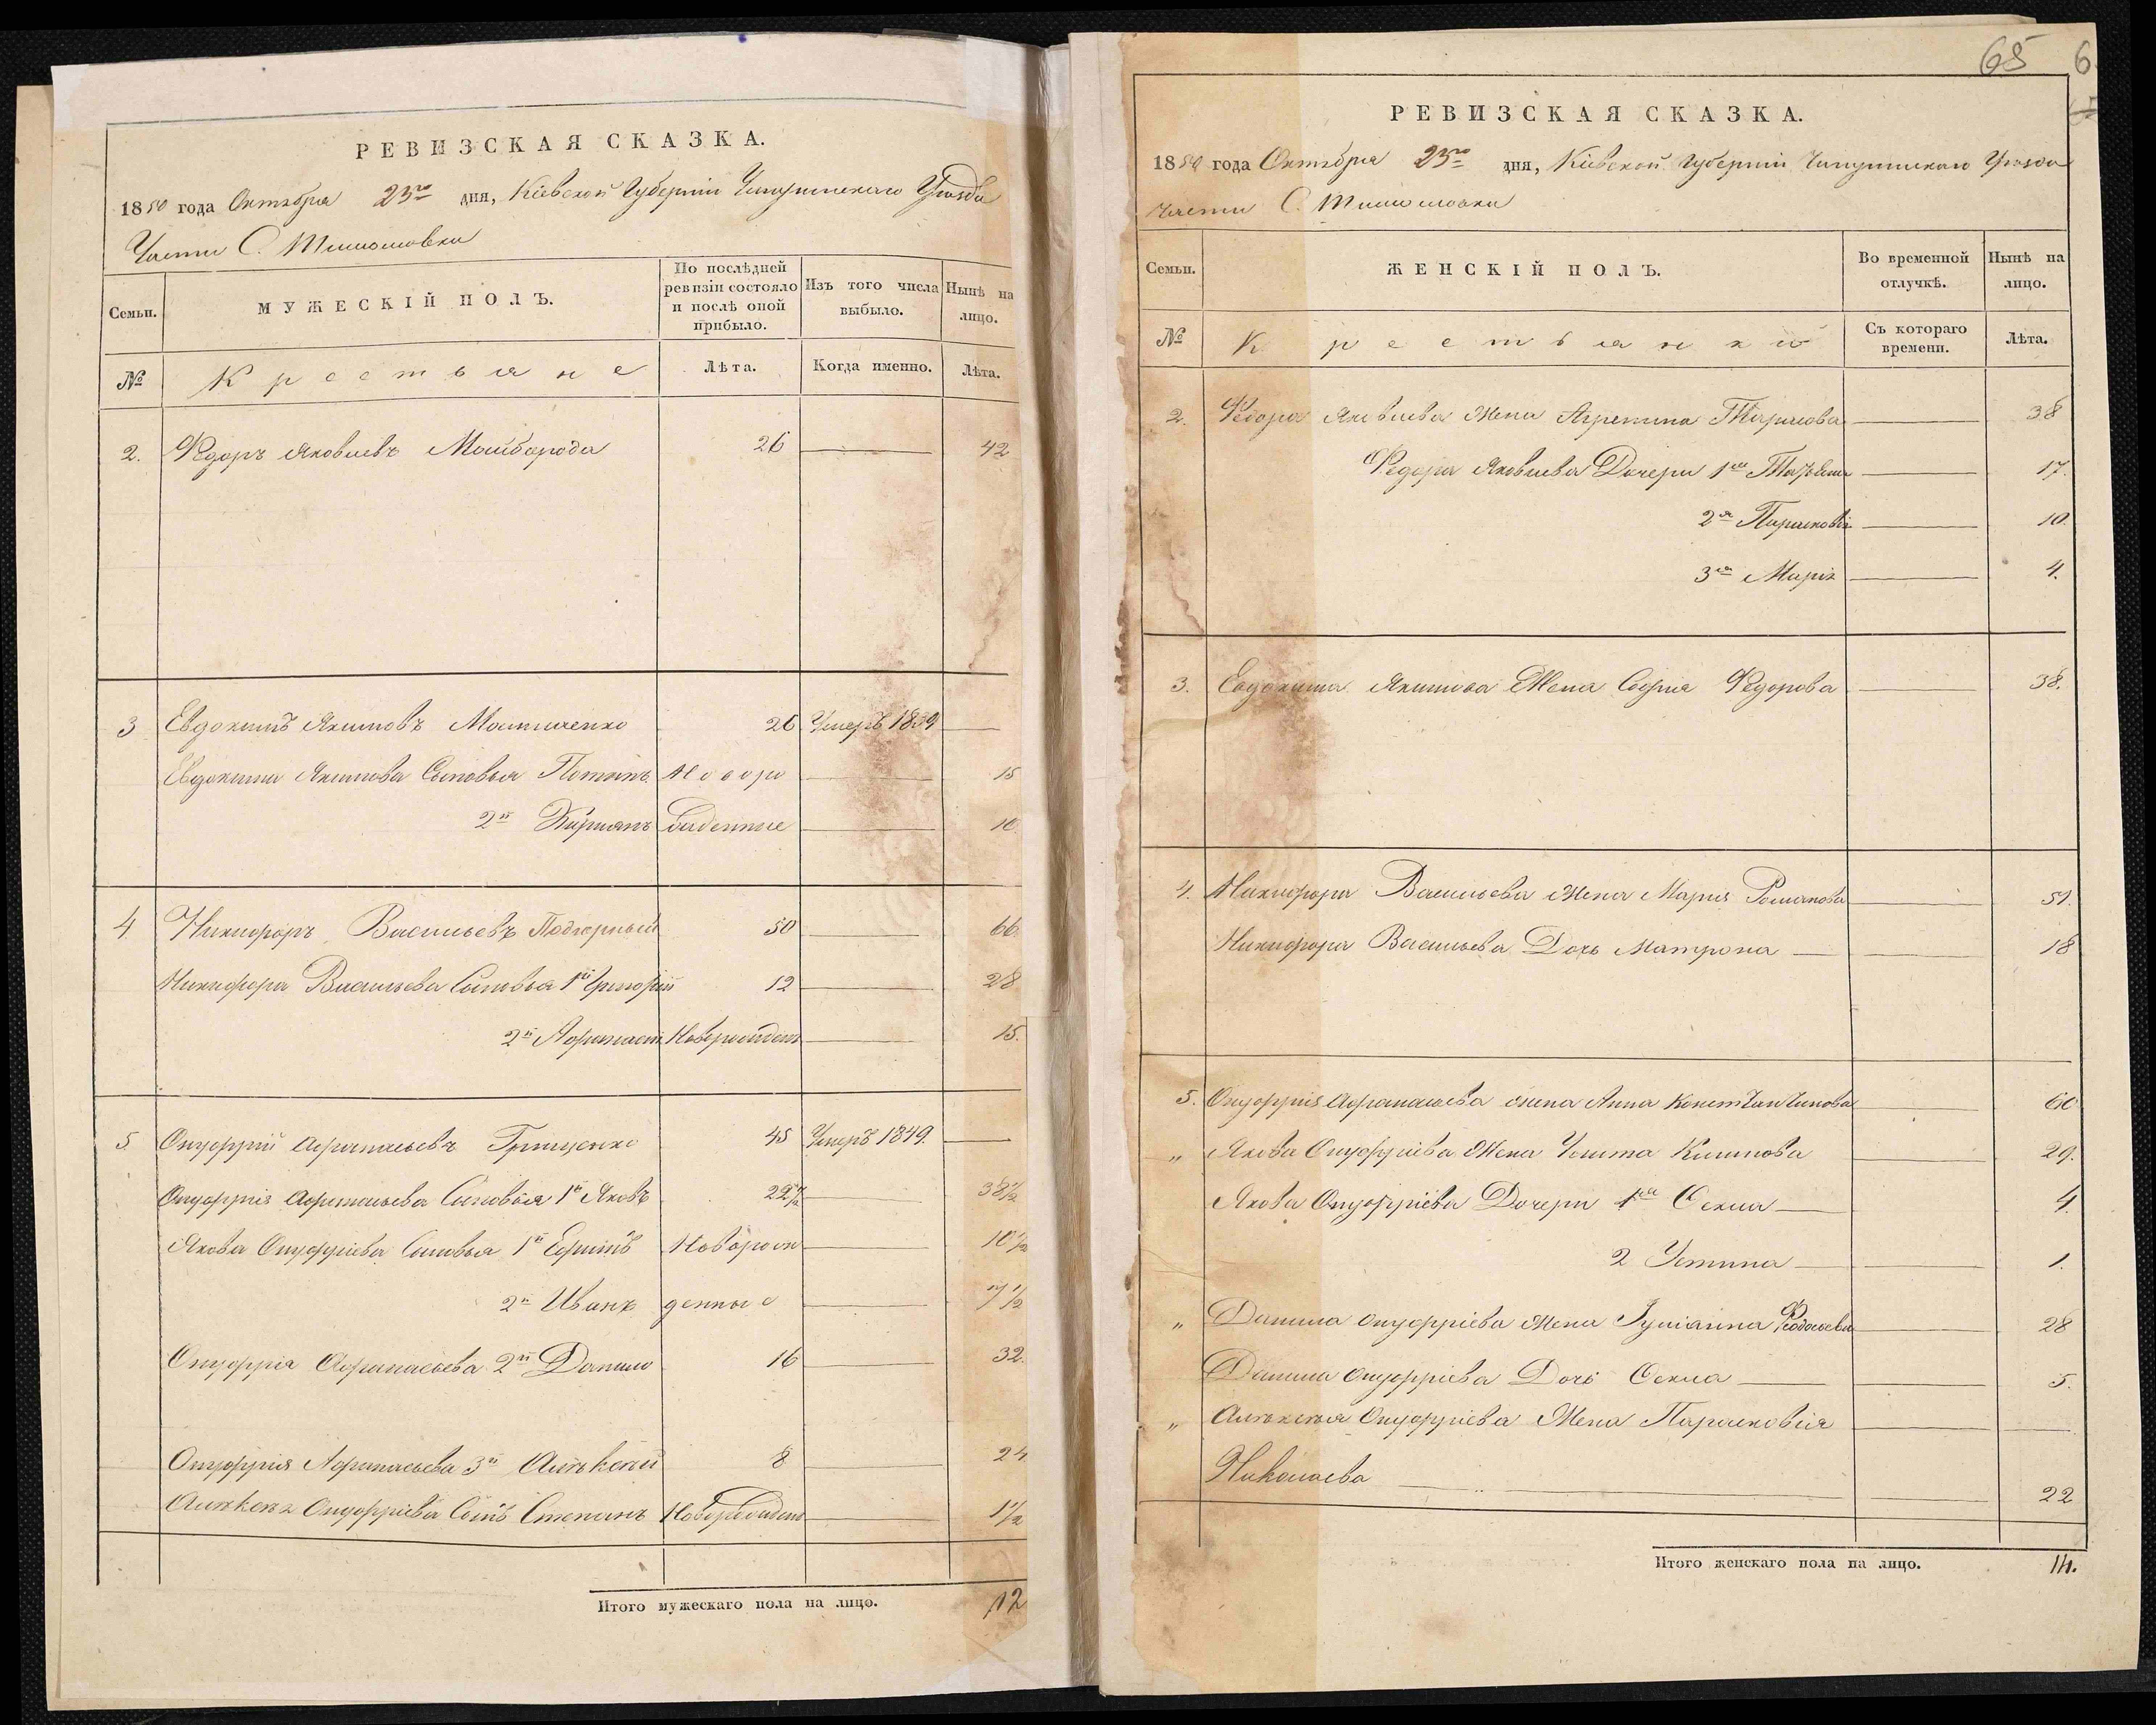 РЕВИЗСКАЯ СКАЗКА.
1850 года Октября 23го дня, Кіевской Губерніи Чигиринскаго Уѣзда
Части С. Тимошовки
Семьи.
МУЖЕСКІЙ ПОЛЪ.
По послѣдней ревизіи состояло и послѣ оной прибыло.
Изъ того числа выбыло.
Нынѣ на лицо.
№
Крестьяне
Лѣта.
Когда именно.
Лѣта.
2. Федоръ Яковлевъ Майборода 26 42
3 Евдокимъ Якимовъ 26 Умеръ 1839
Евдокима Якимова Сыновья Новоро 15
2й бденные 10.
4 Никифоръ Васильевъ Подгорный 50 66.
Никифора Васильева Сыновья 1й Григорій 12 28
2й Афанасій Новорожден 15.
5 Онуфрій Афанасьевъ Грищенко 45 Умеръ 1849.
Онуфрія Афанасьева Сыновья 1й Яковъ 22½ 38½
Якова Онуфріева Сыновья 1й Ефимъ Новорож 10½
2й Иванъ денные 7½
Онуфрія Афанасьева 2й Данило 16 32.
Онуфрія Афанасьева 3й Алѣксѣй 8 24
Алѣксѣя Онуфріева Сынъ Степанъ Новорожден 1½
Итого мужескаго пола на лицо. 12
65 6
РЕВИЗСКАЯ СКАЗКА.
1850 года Октября 23го дня, Кіевской Губерніи Чигиринскаго Уѣзда
части С. Тимошовки
Семьи.
ЖЕНСКІЙ ПОЛЪ.
Во временной отлучкѣ.
Нынѣ на лицо.
№
Крестьянки
Съ котораго времени.
Лѣта.
2. Федора Яковлева Жена Агрепина Тарасова 38
Федора Яковлева Дочери 1я Татьяна 17.
2я Парасковія 10.
3я Марія 4.
3. Евдокима Якимова Жена Софія Федорова 38.
4. Никифора Васильева жена Марія Романова 51.
Никифора Васильева Дочь Матрона 18
5. Онуфрія Афанасьева жена Анна Константинова 60
„ Якова Онуфріева Жена Улита Климова 29.
Якова Онуфріева Дочери 1я Секла 4.
2 Устина 1.
„ Данила Онуфріева Жена Іуліанна Феодосьева 28
Данила Онуфріева Дочь Секла 5.
„ Алѣксѣя Онуфріева Жена Парасковія
Николаева 22
Итого женскаго пола на лицо. 14.